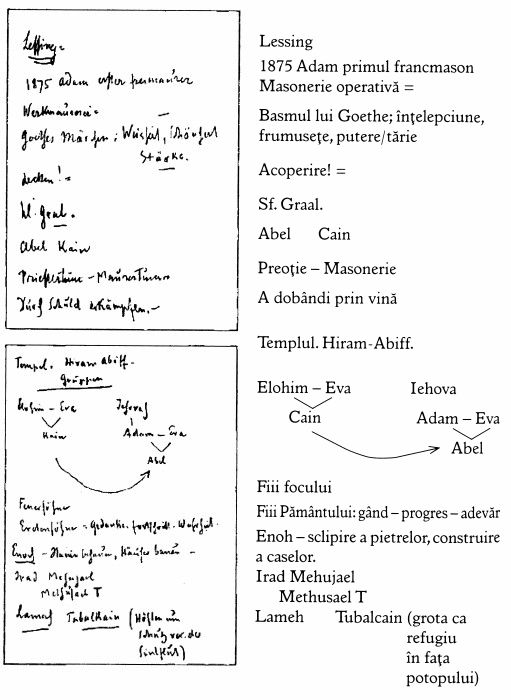 Lessing =
1875 Adam erster Freimaurer
Werkmaurerei =
Goethes Märchen: Weisheit, Schönheit
Stärke.
decken! =
hl. Gral.
Abel Kain
Priestertum – Maurertum
Durch Schuld erkämpfen. –
Tempel. Hiram Abiff –
Elohim – Eva Jehova
Kain Adam – Eva
Abel
Feuersöhne
Erdensöhne = Gedanke. Fortschritt. Wahrheit.
Enoch – Häuser bauen –
Irad Mehujael
Methusael T
Lamech Tubalkain (
Sintflut)
Lessing
1875 Adam primul francmason
Masonerie operativă =
Basmul lui Goethe; înțelepciune,
frumusețe, putere/tărie
Acoperire! =
Sf. Graal.
Abel Cain
Preoție – Masonerie
A dobândi prin vină
Templul. Hiram-Abiff.
Elohim – Eva Iehova
Cain Adam – Eva
Abel
Fiii focului
Fiii Pământului: gând – progres – adevăr
Enoh – sclipire a pietrelor, construire
a caselor.
Irad Mehujael
Methusael T
Lameh Tubalcain (grota ca
refugiu
în fața
potopului)